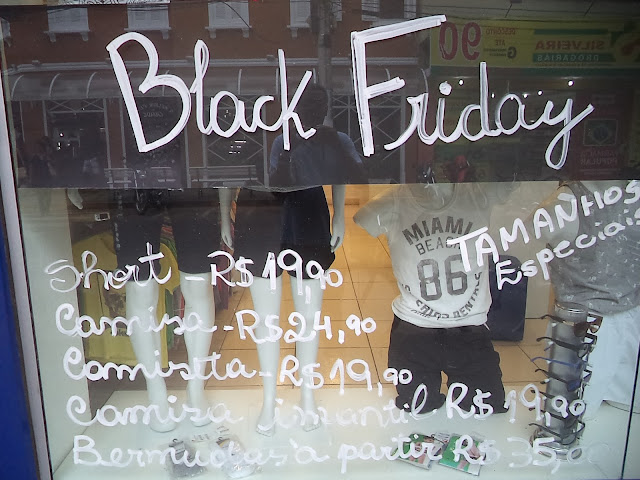 Black Friday
TAMANHOS
Especiais
Short - R$19,90
Camisa - R$24,90
Camistta - R$19,90
Camisa infantil R$19,90
Bermudas à partir R$ 35,00
MIAMI
BEACH
86
90
SILVEIRA
DROGARIAS